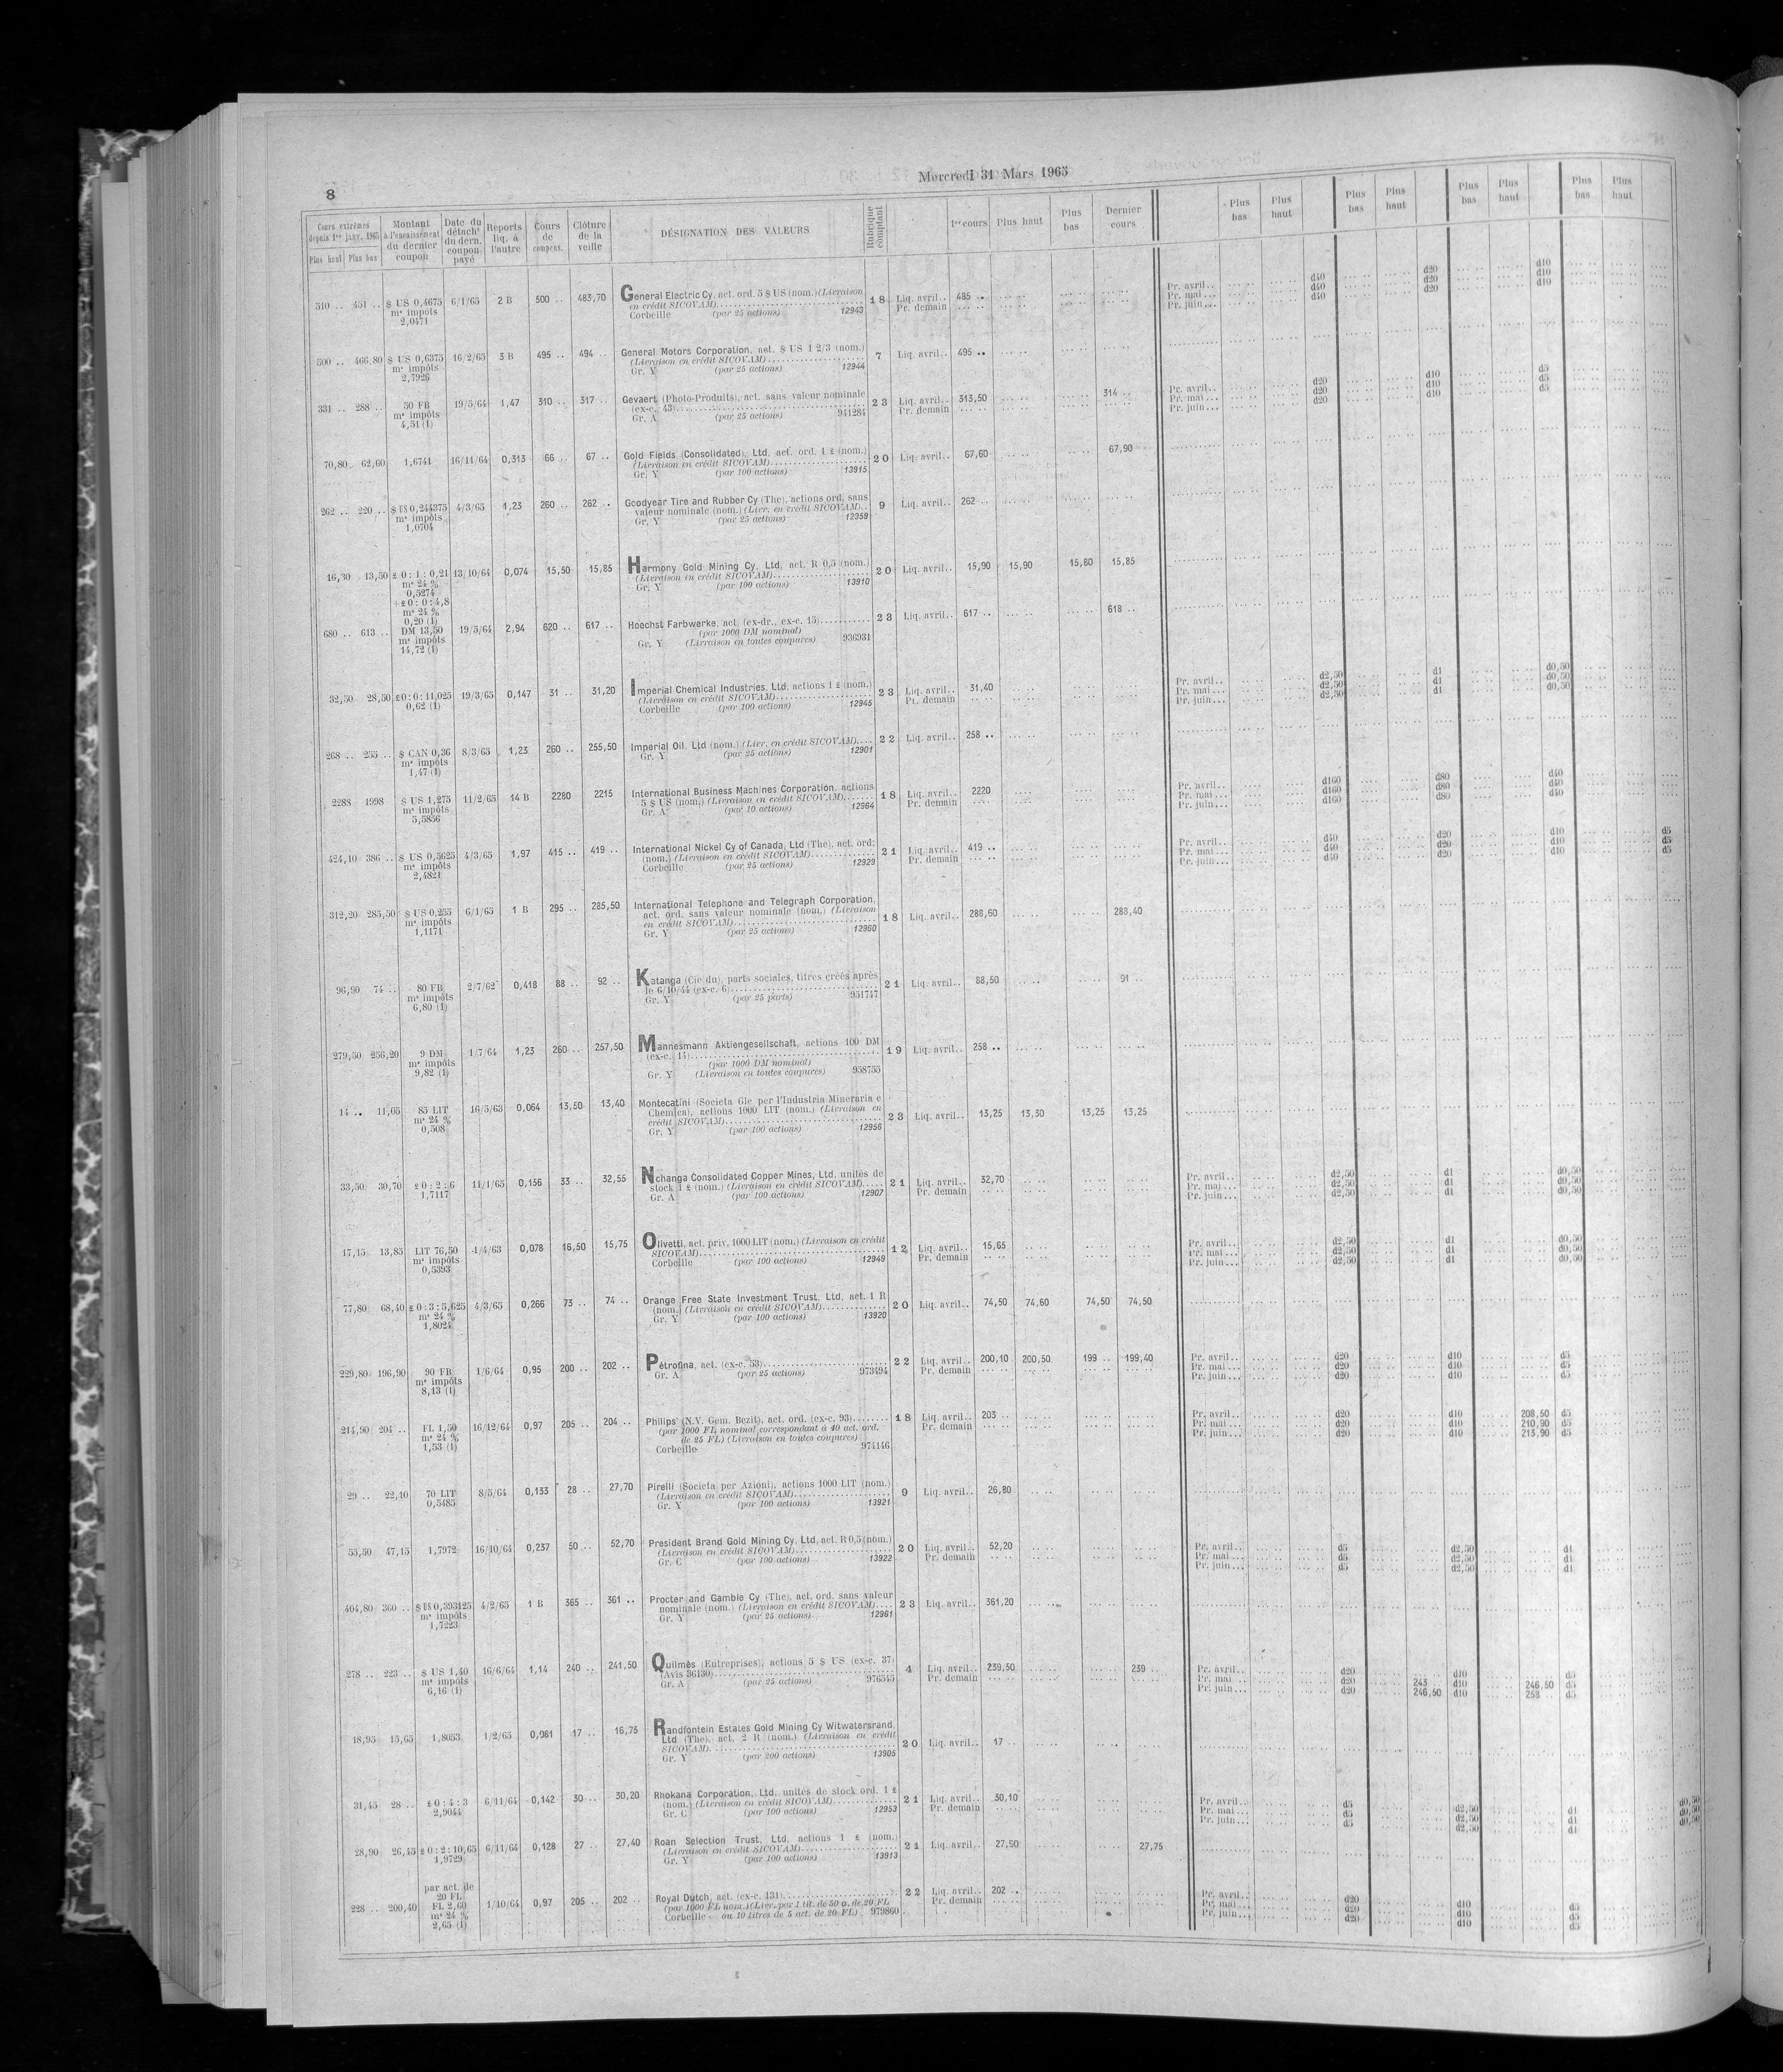 8
Mercredi 31 Mars 1965
Cours extrêmes depuis 1er janv. 1965 Plus haut Plus bas | Montant à l'encaissement du dernier coupon | Date du détacht du dern. coupon payé | Reports liq. à l'autre | Cours de compens. | Clôture de la veille | DÉSIGNATION DES VALEURS | Rubrique comptant | 1er cours | Plus haut | Plus bas | Dernier cours | Plus bas | Plus haut | Plus bas | Plus haut | Plus bas | Plus haut | Plus bas | Plus haut
510 .. 451 .. $ US 0,4675 6/1/65 2 B 500 .. 483,70 General Electric Cy, act. ord. 5 $ US (nom.) (Livraison 18 Liq. avril.. 485 .. Pr. avril.. d40 d20 d10
m⁸ impôts en crédit SICOVAM) 12943 Pr. demain Pr. mai... d40 d20 d10
2,0471 Corbeille (par 25 actions) Pr. juin... d40 d20 d10
500 .. 466,80 $ US 0,6375 16/2/65 3 B 495 .. 494 .. General Motors Corporation, act. $ US 1 2/3 (nom.) 7 Liq. avril.. 495 ..
m⁸ impôts (Livraison en crédit SICOVAM) 12944
2,7926 Gr. Y (par 25 actions)
331 .. 288 .. 50 FB 19/5/64 1,47 310 .. 317 .. Gevaert (Photo-Produits), act. sans valeur nominale 23 Liq. avril.. 313,50 314 .. Pr. avril.. d20 d10 d5
m⁸ impôts (ex-c. 43) 941284 Pr. demain Pr. mai... d20 d10 d5
4,51 (1) Gr. A (par 25 actions) Pr. juin... d20 d10 d5
70,80 62,60 1,6741 16/11/64 0,313 66 .. 67 .. Gold Fields (Consolidated), Ltd, act. ord. 1 £ (nom.) 20 Liq. avril.. 67,60 67,90
(Livraison en crédit SICOVAM) 13915
Gr. Y (par 100 actions)
262 .. 220 .. $ US 0,244375 4/3/65 1,23 260 .. 262 .. Goodyear Tire and Rubber Cy (The), actions ord. sans 9 Liq. avril.. 262 ..
m⁸ impôts valeur nominale (nom.) (Livr. en crédit SICOVAM) 12359
1,0704 Gr. Y (par 25 actions)
16,30 13,50 £ 0 : 1 : 0,21 13/10/64 0,074 15,50 15,85 Harmony Gold Mining Cy, Ltd, act. R 0,5 (nom.) 20 Liq. avril.. 15,90 15,90 15,80 15,85
m⁸ 24 % (Livraison en crédit SICOVAM) 13910
0,5274 Gr. Y (par 100 actions)
+ £ 0 : 0 : 4,8
m⁸ 24 %
0,20 (1)
680 .. 613 .. DM 13,50 19/5/64 2,94 620 .. 617 .. Hoechst Farbwerke, act. (ex-dr., ex-c. 15) 23 Liq. avril.. 617 .. 618 ..
m⁸ impôts (par 1000 DM nominal)
14,72 (1) Gr. Y (Livraison en toutes coupures) 936931
32,50 28,50 £ 0 : 0 : 11,025 19/3/65 0,147 31 .. 31,20 Imperial Chemical Industries, Ltd, actions 1 £ (nom.) 23 Liq. avril.. 31,40 Pr. avril.. d2,50 d1 d0,50
0,62 (1) (Livraison en crédit SICOVAM) 12945 Pr. demain Pr. mai... d2,50 d1 d0,50
Corbeille (par 100 actions) Pr. juin... d2,50 d1 d0,50
268 .. 255 .. $ CAN 0,36 8/3/65 1,23 260 .. 255,50 Imperial Oil, Ltd (nom.) (Livr. en crédit SICOVAM) 22 Liq. avril.. 258 ..
m⁸ impôts Gr. Y (par 25 actions) 12901
1,47 (1)
2288 1998 $ US 1,275 11/2/65 14 B 2280 2215 International Business Machines Corporation, actions 18 Liq. avril.. 2220 Pr. avril.. d160 d80 d40
m⁸ impôts 5 $ US (nom.) (Livraison en crédit SICOVAM) 12964 Pr. demain Pr. mai... d160 d80 d40
5,5856 Gr. A (par 10 actions) Pr. juin... d160 d80 d40
424,10 386 .. $ US 0,5625 4/3/65 1,97 415 .. 419 .. International Nickel Cy of Canada, Ltd (The), act. ord. 21 Liq. avril.. 419 .. Pr. avril.. d40 d20 d10 d5
m⁸ impôts (nom.) (Livraison en crédit SICOVAM) 12929 Pr. demain Pr. mai... d40 d20 d10 d5
2,4821 Corbeille (par 25 actions) Pr. juin... d40 d20 d10 d5
312,20 285,50 $ US 0,255 6/1/65 1 B 295 .. 285,50 International Telephone and Telegraph Corporation, 18 Liq. avril.. 288,60 288,40
m⁸ impôts act. ord. sans valeur nominale (nom.) (Livraison
1,1171 en crédit SICOVAM) 12960
Gr. Y (par 25 actions)
96,90 74 .. 80 FB 2/7/62 0,418 88 .. 92 .. Katanga (Cie du), parts sociales, titres créés après 21 Liq. avril.. 88,50 91 ..
m⁸ impôts le 6/10/44 (ex-c. 6) 951747
6,80 (1) Gr. Y (par 25 parts)
279,50 256,20 9 DM 1/7/64 1,23 260 .. 257,50 Mannesmann Aktiengesellschaft, actions 100 DM 19 Liq. avril.. 258 ..
m⁸ impôts (ex-c. 14)
9,82 (1) (par 1000 DM nominal)
Gr. Y (Livraison en toutes coupures) 958755
14 .. 11,05 85 LIT 16/5/63 0,064 13,50 13,40 Montecatini (Societa Gle per l'Industria Mineraria e 23 Liq. avril.. 13,25 13,30 13,25 13,25
m⁸ 24 % Chemica), actions 1000 LIT (nom.) (Livraison en
0,508 crédit SICOVAM) 12956
Gr. Y (par 100 actions)
33,50 30,70 £ 0 : 2 : 6 11/1/65 0,156 33 .. 32,55 Nchanga Consolidated Copper Mines, Ltd, unités de 21 Liq. avril.. 32,70 Pr. avril.. d2,50 d1 d0,50
1,7117 stock 1 £ (nom.) (Livraison en crédit SICOVAM) 12907 Pr. demain Pr. mai... d2,50 d1 d0,50
Gr. A (par 100 actions) Pr. juin... d2,50 d1 d0,50
17,15 13,85 LIT 76,50 4/4/63 0,078 16,50 15,75 Olivetti, act. priv. 1000 LIT (nom.) (Livraison en crédit 12 Liq. avril.. 15,65 Pr. avril.. d2,50 d1 d0,50
m⁸ impôts SICOVAM) 12949 Pr. demain Pr. mai... d2,50 d1 d0,50
0,5393 Corbeille (par 100 actions) Pr. juin... d2,50 d1 d0,50
77,80 68,40 £ 0 : 3 : 5,625 4/3/65 0,266 73 .. 74 .. Orange Free State Investment Trust, Ltd, act. 1 R 20 Liq. avril.. 74,50 74,60 74,50 74,50
m⁸ 24 % (nom.) (Livraison en crédit SICOVAM) 13920
1,8024 Gr. Y (par 100 actions)
229,80 196,90 90 FB 1/6/64 0,95 200 .. 202 .. Pétrofina, act. (ex-c. 53) 22 Liq. avril.. 200,10 200,50 199 .. 199,40 Pr. avril.. d20 d10 d5
m⁸ impôts Gr. A (par 25 actions) 973494 Pr. demain Pr. mai... d20 d10 d5
8,13 (1) Pr. juin... d20 d10 d5
214,90 204 .. FL 1,50 16/12/64 0,97 205 .. 204 .. Philips' (N.V. Gem. Bezit), act. ord. (ex-c. 93) 18 Liq. avril.. 203 .. Pr. avril.. d20 d10 208,50 d5
m⁸ 24 % (par 1000 FL nominal correspondant à 40 act. ord. Pr. demain Pr. mai... d20 d10 210,90 d5
1,53 (1) de 25 FL) (Livraison en toutes coupures) Pr. juin... d20 d10 213,90 d5
Corbeille 974446
29 .. 22,10 70 LIT 8/5/64 0,133 28 .. 27,70 Pirelli (Societa per Azioni), actions 1000 LIT (nom.) 9 Liq. avril.. 26,80
0,5485 (Livraison en crédit SICOVAM) 13921
Gr. Y (par 100 actions)
55,50 47,15 1,7972 16/10/64 0,237 50 .. 52,70 President Brand Gold Mining Cy, Ltd, act. R 0,5 (nom.) 20 Liq. avril.. 52,20 Pr. avril.. d5 d2,50 d1
(Livraison en crédit SICOVAM) 13922 Pr. demain Pr. mai... d5 d2,50 d1
Gr. C (par 100 actions) Pr. juin... d5 d2,50 d1
404,80 360 .. $ US 0,393125 4/2/65 1 B 365 .. 361 .. Procter and Gamble Cy (The), act. ord. sans valeur 23 Liq. avril.. 361,20
m⁸ impôts nominale (nom.) (Livraison en crédit SICOVAM) 12961
1,7223 Gr. Y (par 25 actions)
278 .. 223 .. $ US 1,40 16/6/64 1,14 240 .. 241,50 Quilmès (Entreprises), actions 5 $ US (ex-c. 37) 4 Liq. avril.. 239,50 239 .. Pr. avril.. d20 d10 d5
m⁸ impôts (Avis 36130) 976545 Pr. demain Pr. mai ... d20 243 .. d10 246,50 d5
6,16 (1) Gr. A (par 25 actions) Pr. juin... d20 246,50 d10 258 .. d5
18,95 15,65 1,8053 1/2/65 0,061 17 .. 16,75 Randfontein Estates Gold Mining Cy Witwatersrand,
Ltd (The), act. 2 R (nom.) (Livraison en crédit 20 Liq. avril.. 17 ..
SICOVAM) 13905
Gr. Y (par 200 actions)
31,45 28 .. £ 0 : 4 : 3 6/11/64 0,142 30 .. 30,20 Rhokana Corporation, Ltd, unités de stock ord. 1 £ 21 Liq. avril.. 30,10 Pr. avril.. d5 d2,50 d1 d0,50
2,9044 (nom.) (Livraison en crédit SICOVAM) 12953 Pr. demain Pr. mai... d5 d2,50 d1 d0,50
Gr. C (par 100 actions) Pr. juin... d5 d2,50 d1 d0,50
28,90 26,45 £ 0 : 2 : 10,65 6/11/64 0,128 27 .. 27,40 Roan Selection Trust, Ltd, actions 1 £ (nom.) 21 Liq. avril.. 27,50 27,75
1,9729 (Livraison en crédit SICOVAM) 13913
Gr. Y (par 100 actions)
par act. de
20 FL
228 .. 200,40 FL 2,60 1/10/64 0,97 205 .. 202 .. Royal Dutch, act. (ex-c. 131) 22 Liq. avril.. 202 .. Pr. avril.. d20 d10 d5
m⁸ 24 % (par 1000 FL nom.) (Livr. par 1 tit. de 50 a. de 20 FL Pr. demain Pr. mai... d20 d10 d5
2,65 (1) Corbeille ou 10 titres de 5 act. de 20 FL) 979860 Pr. juin... d20 d10 d5